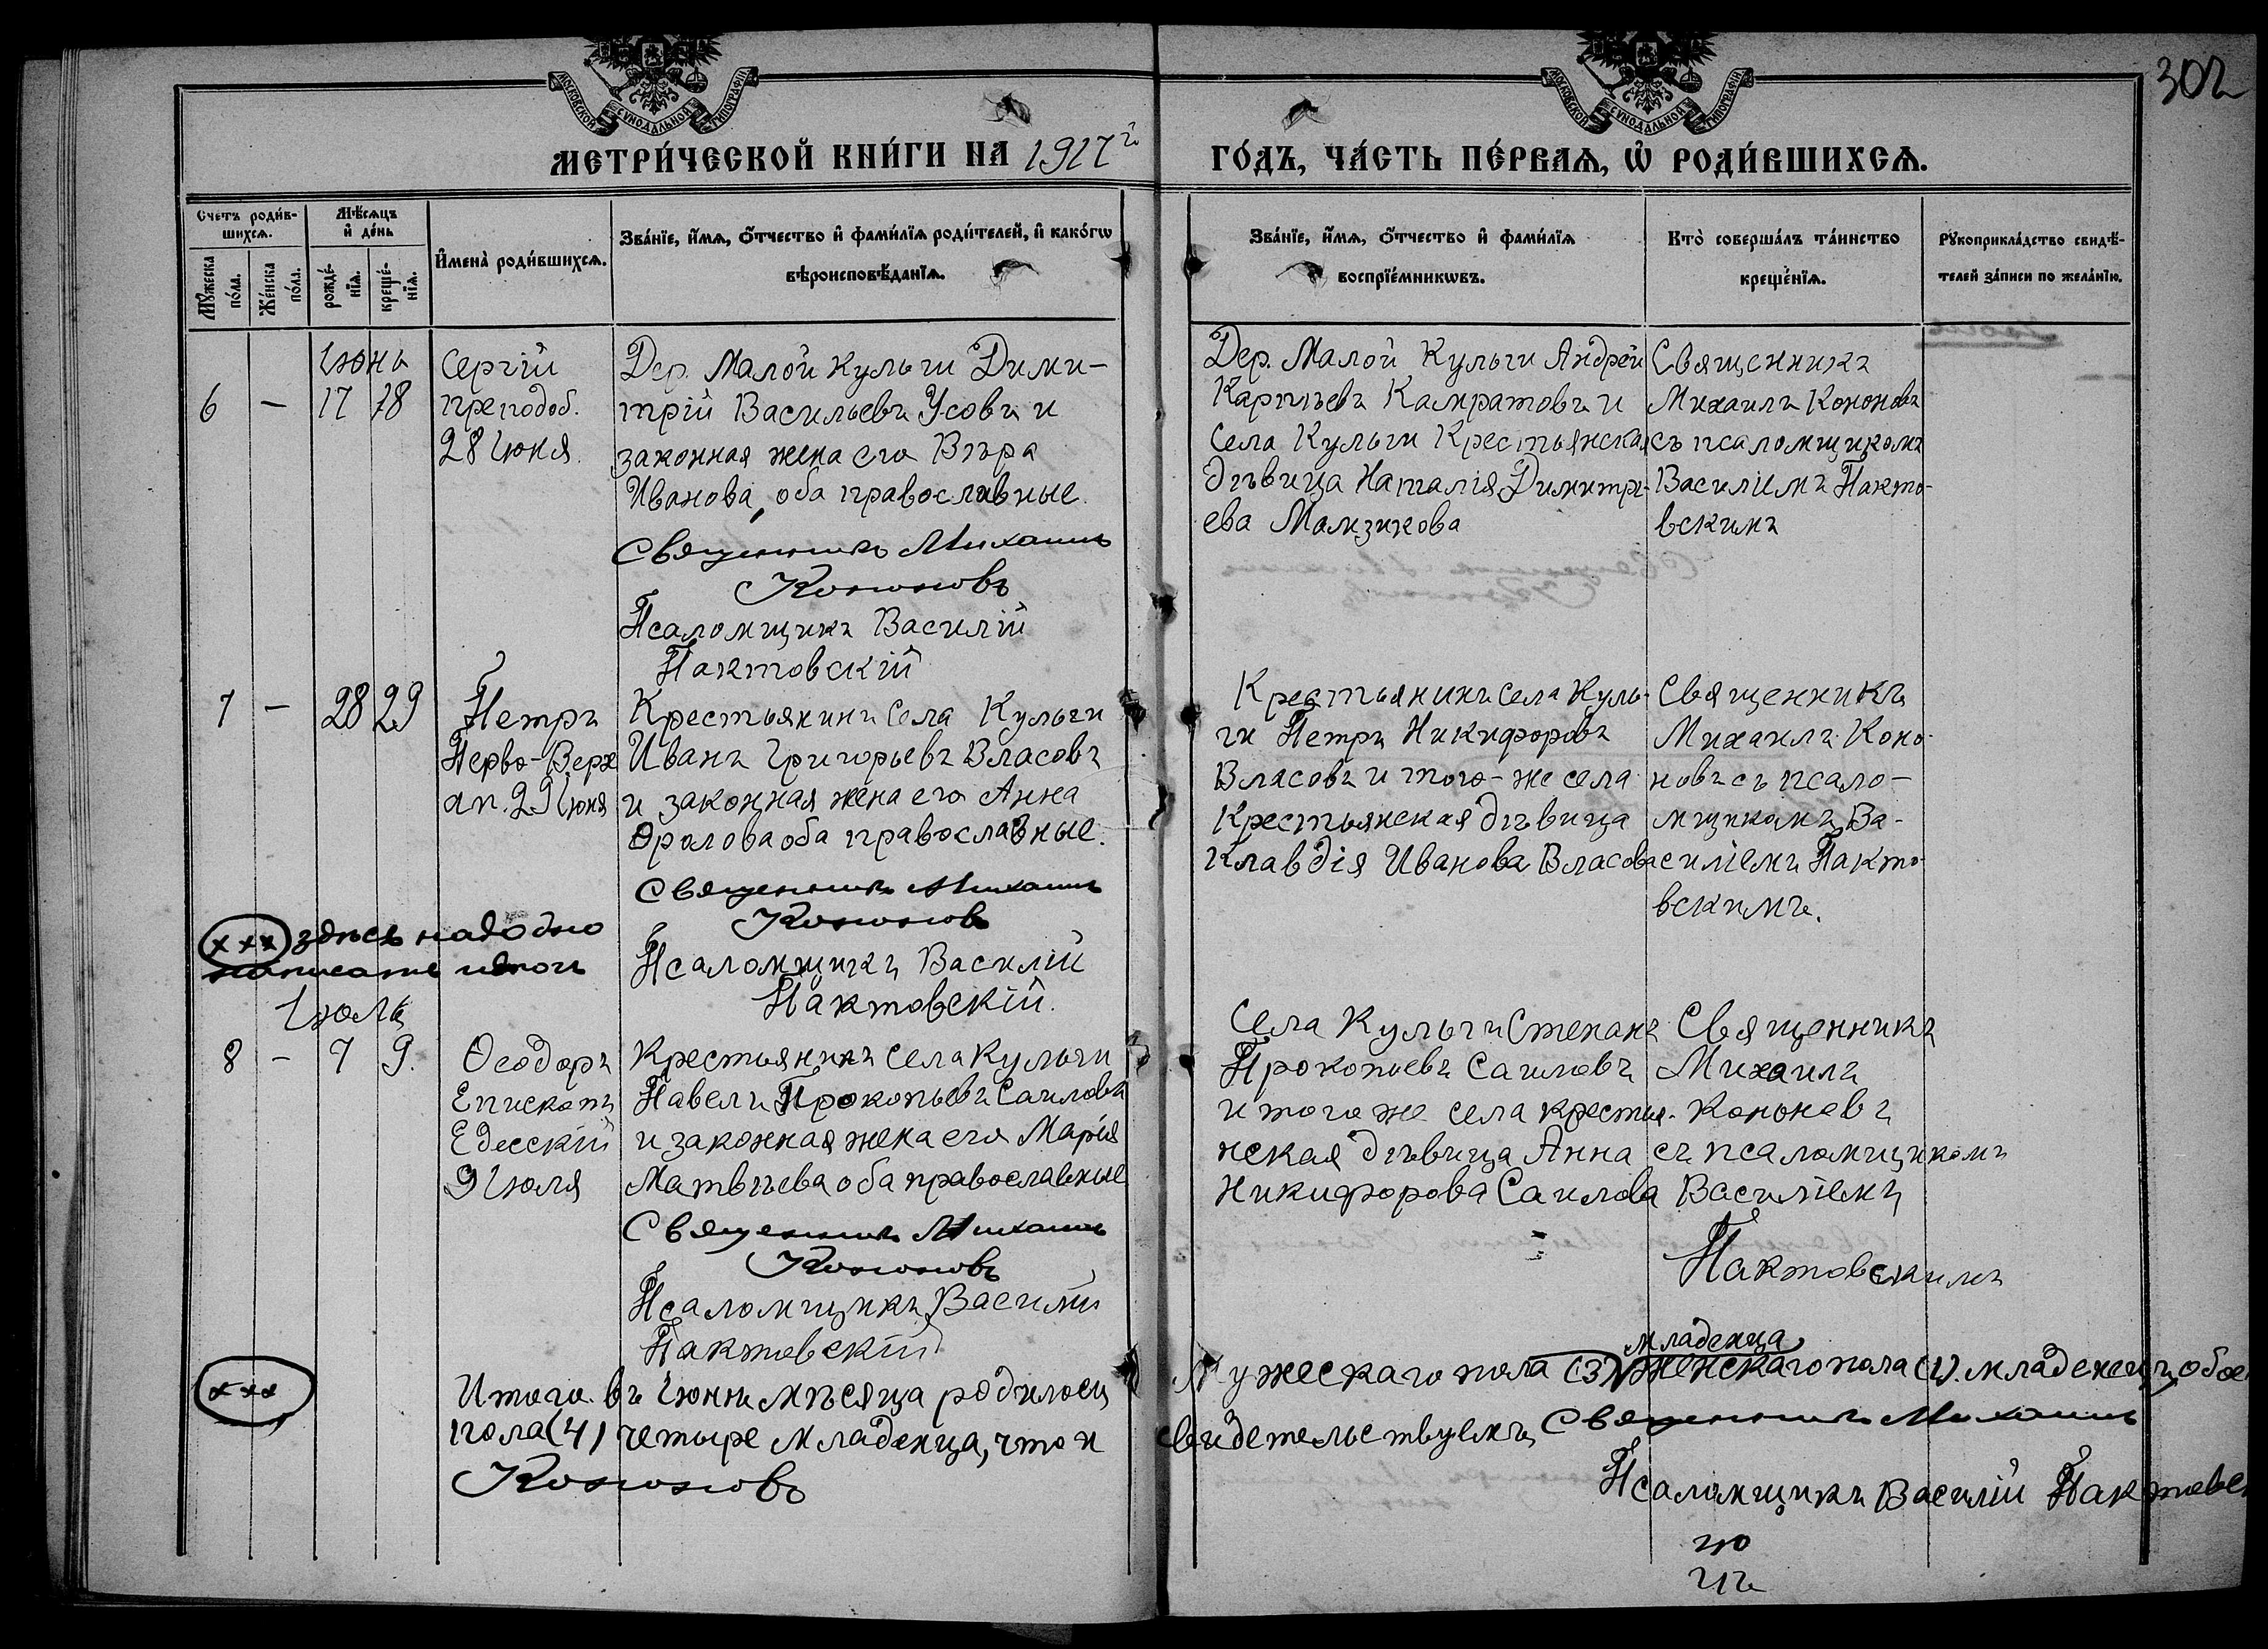 302
МОСКОВСКОЙ СѴНОДАЛЬНОЙ ТИПОГРАФІИ
МОСКОВСКОЙ СѴНОДАЛЬНОЙ ТИПОГРАФІИ
МЕТРИ́ЧЕСКОЙ КНИ́ГИ НА 1917 й
ГО́ДЪ, ЧА́СТЬ ПЕ́РВАѦ, Ѡ҆ РОДИ́ВШИХСѦ.
Счетъ роди́в-
шихсѧ.
Мꙋжеска
по́ла.
Же́нска
по́ла.
Мѣ́сѧцъ
и҆ де́нь
рожде́-
нїѧ.
креще́-
нїѧ.
И҆мена̀ роди́вшихсѧ.
Зва́нїе, и҆́мѧ, ѻ҆́тчество и҆ фами́лїѧ роди́телей, и҆ како́гѡ
вѣроисповѣ́данїѧ.
Зва́нїе, и҆́мѧ, ѻ҆́тчество и҆ фами́лїѧ
воспрїе́мникѡвъ.
Кто̀ соверша́лъ та́инство
креще́нїѧ.
Рꙋкоприкла́дство свидѣ́-
телей за́писи по жела́нїю.
Іюнь
6 — 17 18
Сергій
преподоб.
28 Іюня.
Дер. Малой Кульги Дими-
трій Васильевъ Усовъ и
законная жена его Вѣра
Иванова, оба православные.
Священникъ Михаилъ
Кононовъ
Псаломщикъ Василій
Пактовскій
Дер. Малой Кульги Андрей
Карпъевъ Камратовъ и
Села Кульги Крестьянская
дѣвица Наталія Димитрі-
ева Мамзикова
Священникъ
Михаилъ Кононовъ
съ псаломщикомъ
Василіемъ Пакто-
вскимъ
7 — 28 29
Петръ
Перво-Верх
ап. 29 Іюня
Крестьянинъ Села Кульги
Иванъ Григорьевъ Власовъ
и законная жена его Анна
Фролова оба православные.
Священникъ Михаилъ
Кононовъ
Псаломщикъ Василій
Пактовскій.
Крестьянинъ села Куль-
ги Петръ Никифоровъ
Власовъ и того-же села
Крестьянская дѣвица
Клавдія Иванова Власова
Священникъ
Михаилъ Коно-
новъ съ псало-
мщикомъ Ва-
силіемъ Пакто-
вскимъ.
ххх здѣсь надобно
написать итогъ
Іюль
8 — 7 9.
Ѳеодоръ
Епископъ
Едесскій
9 Іюля
Крестьянинъ села Кульги
Павелъ Прокопьевъ Саиловъ
и законная жена его Марія
Матвѣева оба православные
Священникъ Михаилъ
Кононовъ
Псаломщикъ Василій
Пактовскій
Села Кульги Степанъ
Прокопьевъ Саиловъ
и того же села крестья-
нская дѣвица Анна
Никифорова Саилова
Священникъ
Михаилъ
Кононовъ
съ псаломщикомъ
Василіемъ
Пактовскимъ
ххх
младенца
Итого въ Іюнѣ мѣсяца родилось Мужескаго пола (3) женскаго пола (1) младенецъ, обое
пола (4) четыре младенца, что и свидетельствуемъ, Священникъ Михаилъ
Кононовъ
Псаломщикъ Василій Пактовск